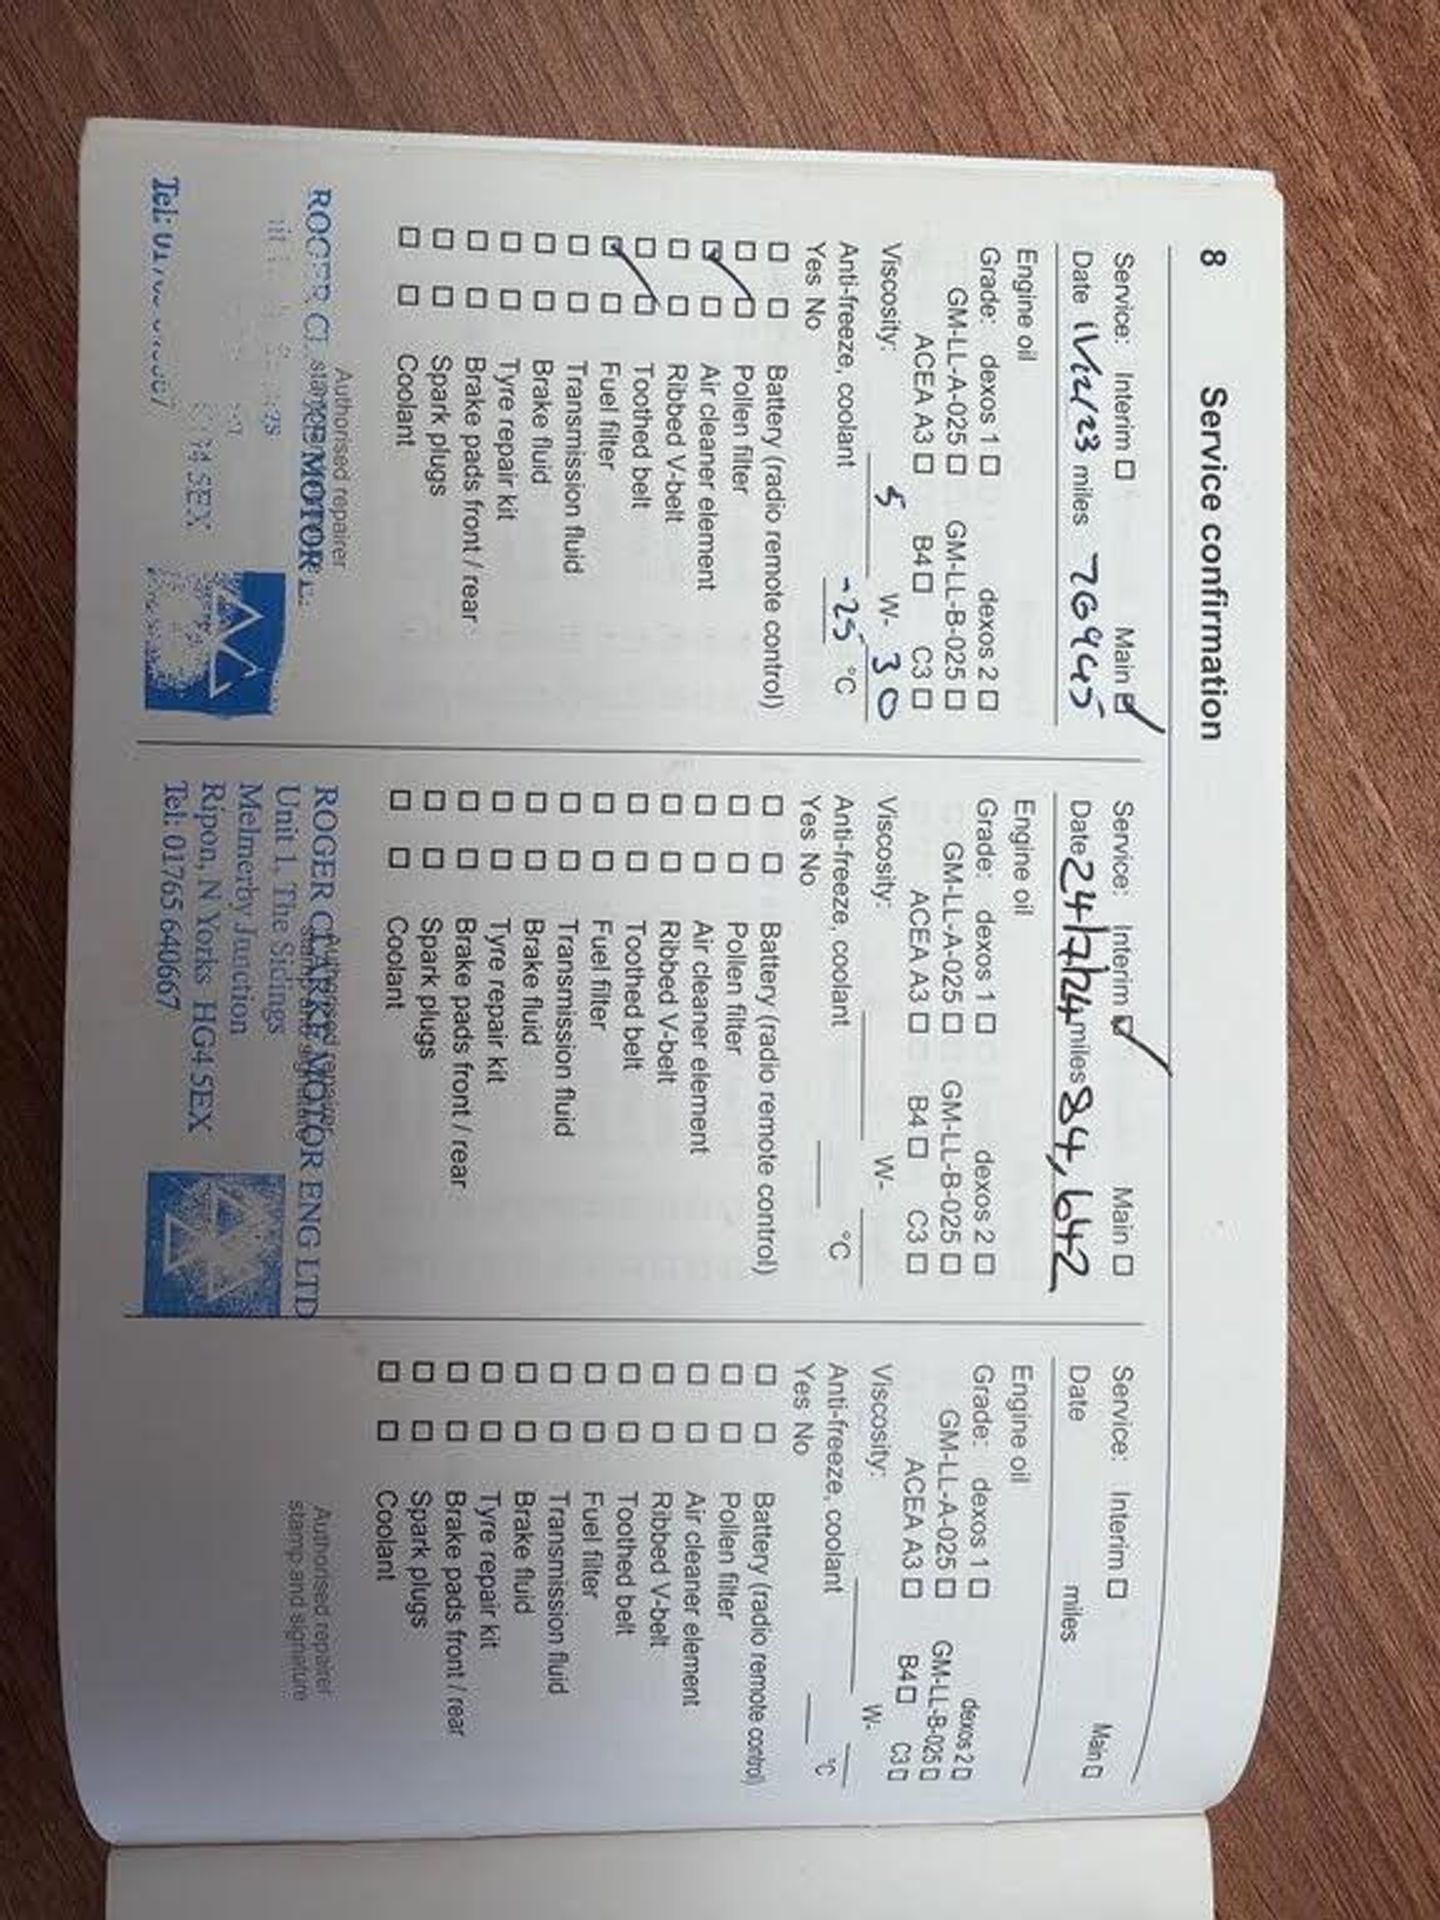 8 Service confirmation
Service: Interim ☐ Main ☑
Date miles 76945
Engine oil
Grade: dexos 1 ☐ dexos 2 ☐
GM-LL-A-025 ☐ GM-LL-B-025 ☐
ACEA A3 ☐ B4 ☐ C3 ☐
Viscosity: 5 W- 30
Anti-freeze, coolant -25 °C
Yes No
☐ ☐ Battery (radio remote control)
☐ ☐ Pollen filter
☑ ☐ Air cleaner element
☐ ☐ Ribbed V-belt
☐ ☐ Toothed belt
☑ ☐ Fuel filter
☐ ☐ Transmission fluid
☐ ☐ Brake fluid
☐ ☐ Tyre repair kit
☐ ☐ Brake pads front / rear
☐ ☐ Spark plugs
☐ ☐ Coolant
Authorised repairer
ROGER MOTOR
5EX
Tel:
Service: Interim ☑ Main ☐
Date 24/7/24 miles 84,642
Engine oil
Grade: dexos 1 ☐ dexos 2 ☐
GM-LL-A-025 ☐ GM-LL-B-025 ☐
ACEA A3 ☐ B4 ☐ C3 ☐
Viscosity: W-
Anti-freeze, coolant °C
Yes No
☐ ☐ Battery (radio remote control)
☐ ☐ Pollen filter
☐ ☐ Air cleaner element
☐ ☐ Ribbed V-belt
☐ ☐ Toothed belt
☐ ☐ Fuel filter
☐ ☐ Transmission fluid
☐ ☐ Brake fluid
☐ ☐ Tyre repair kit
☐ ☐ Brake pads front / rear
☐ ☐ Spark plugs
☐ ☐ Coolant
ROGER CLARKE MOTOR ENG LTD
Unit 1, The Sidings
Melmerby Junction
Ripon, N Yorks HG4 5EX
Tel: 01765 640667
Service: Interim ☐ Main ☐
Date miles
Engine oil
Grade: dexos 1 ☐ dexos 2 ☐
GM-LL-A-025 ☐ GM-LL-B-025 ☐
ACEA A3 ☐ B4 ☐ C3 ☐
Viscosity: W-
Anti-freeze, coolant °C
Yes No
☐ ☐ Battery (radio remote control)
☐ ☐ Pollen filter
☐ ☐ Air cleaner element
☐ ☐ Ribbed V-belt
☐ ☐ Toothed belt
☐ ☐ Fuel filter
☐ ☐ Transmission fluid
☐ ☐ Brake fluid
☐ ☐ Tyre repair kit
☐ ☐ Brake pads front / rear
☐ ☐ Spark plugs
☐ ☐ Coolant
Authorised repairer
stamp and signature